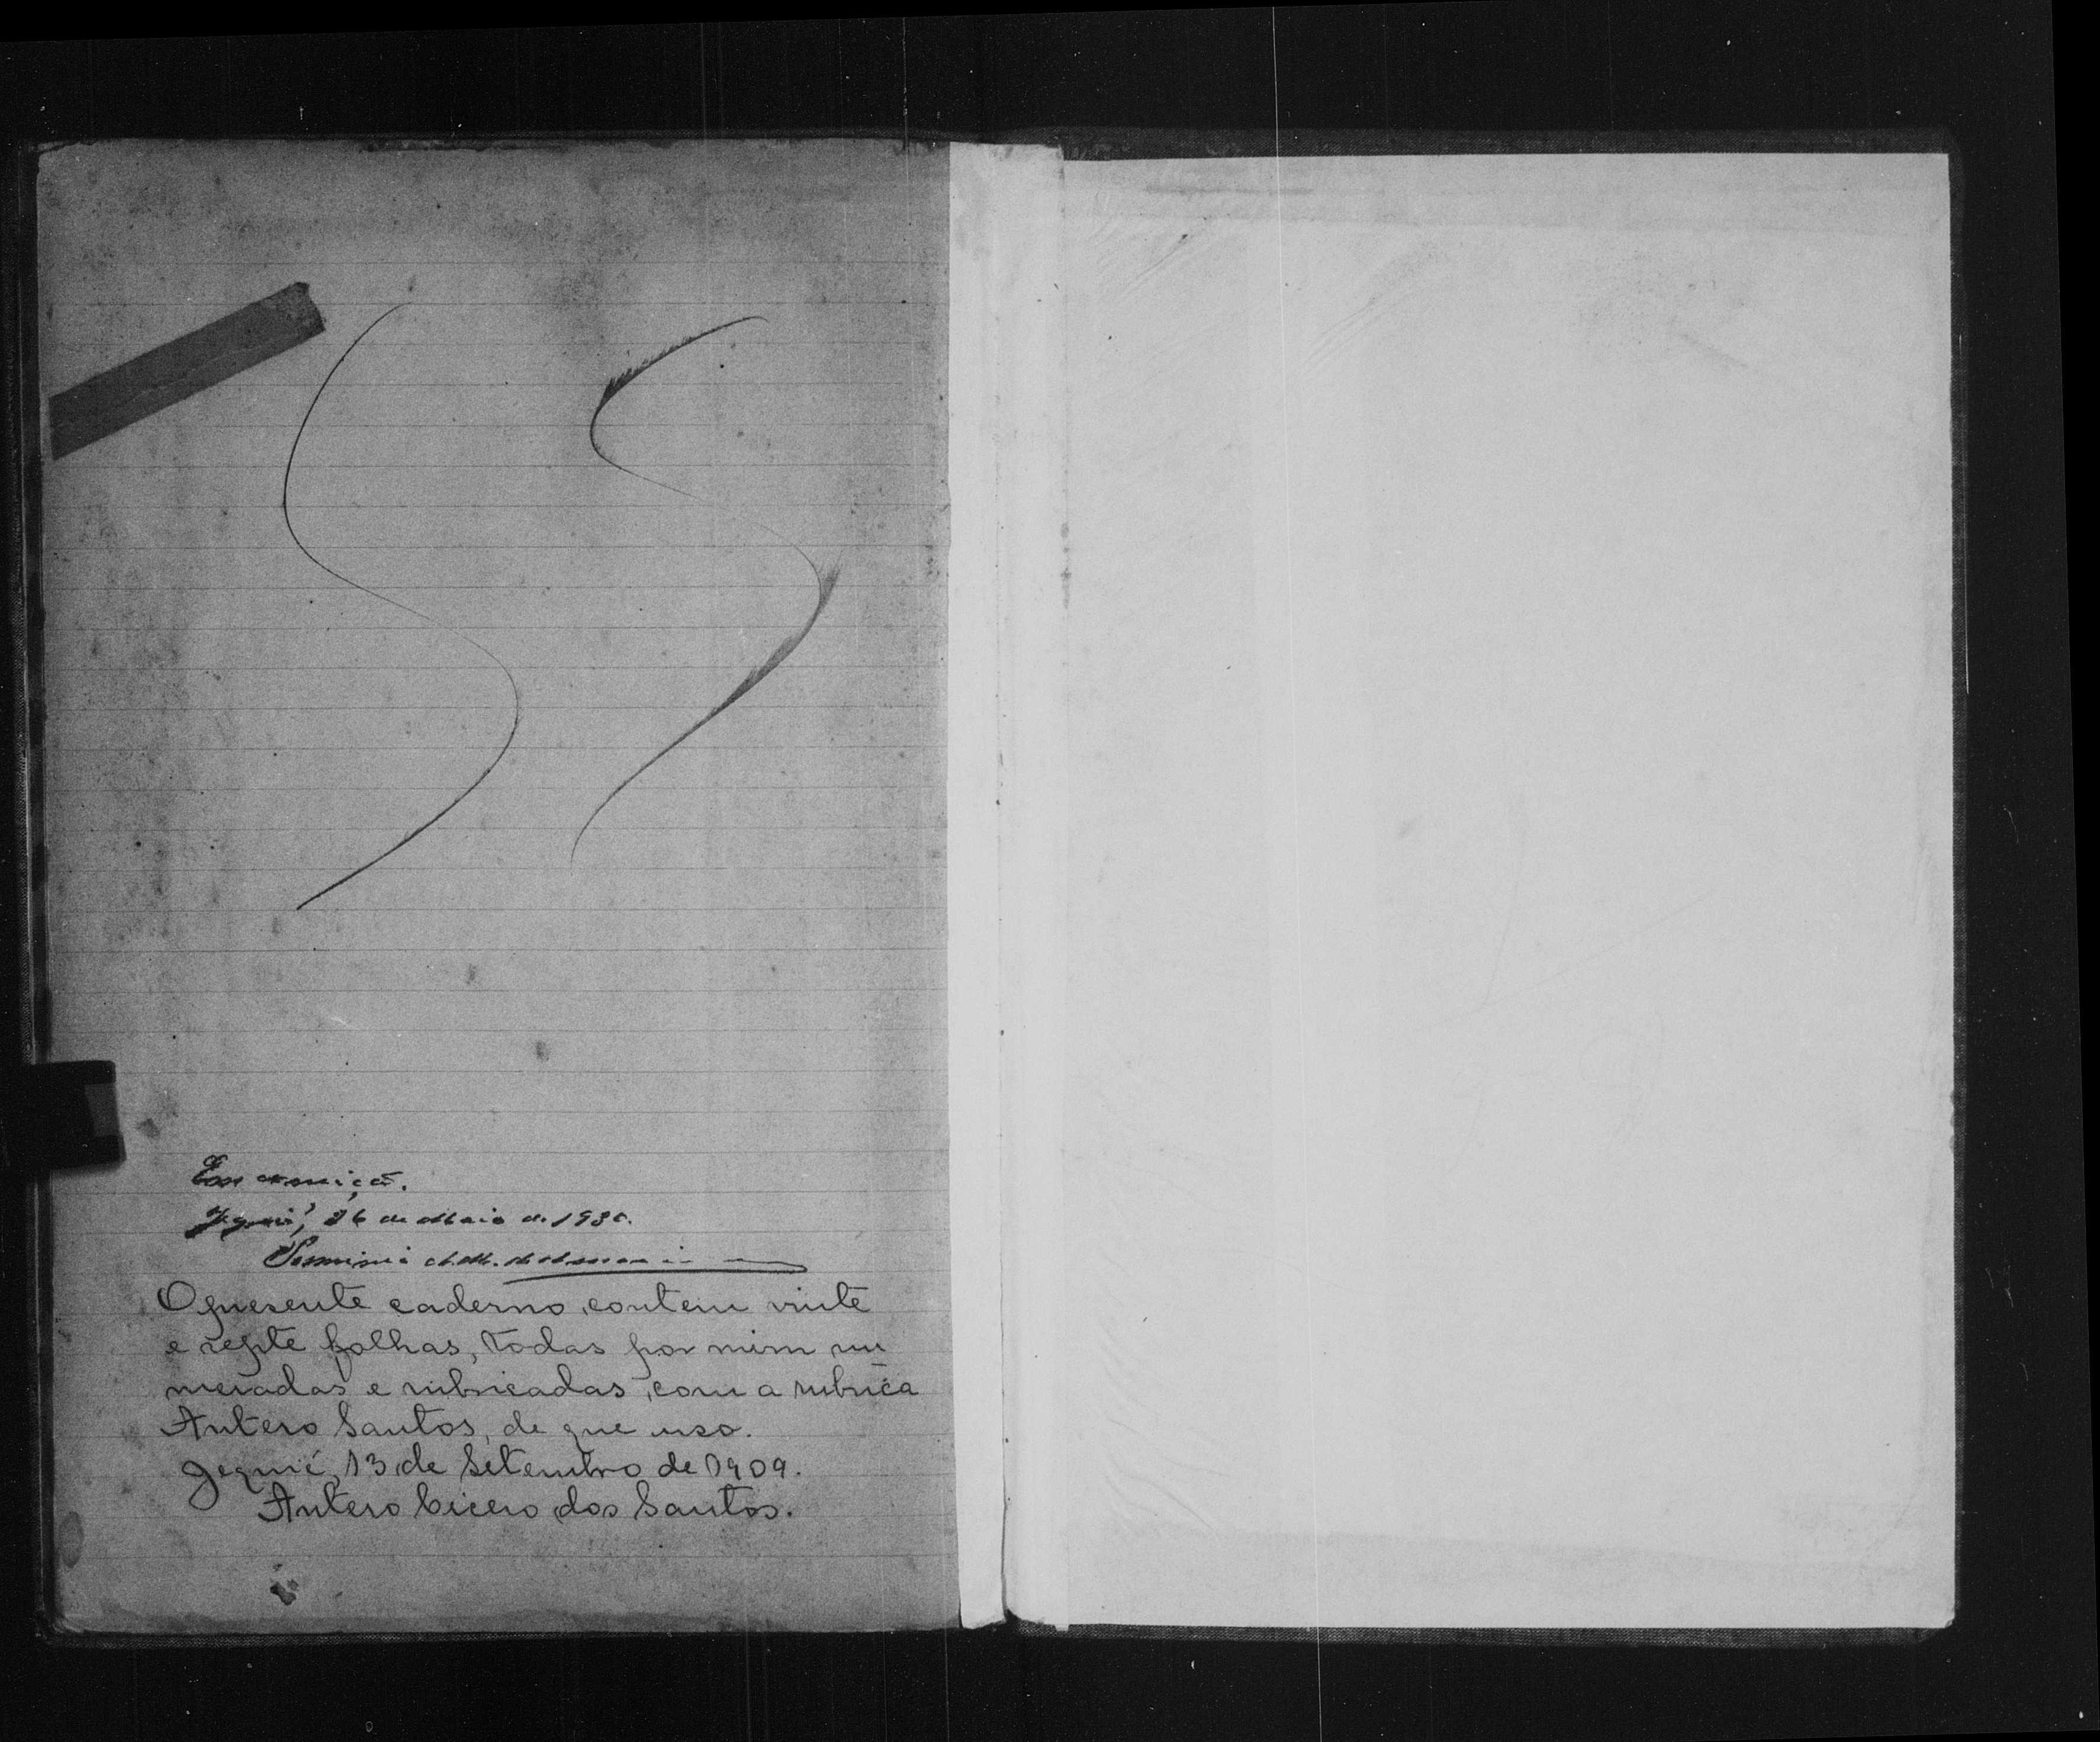 Em correição.
Jequié, 26 de Maio de 1930.
O presente caderno, contem vinte
e septe folhas, todas por mim nu
meradas e rubricadas, com a rubrica
Antero Santos, de que uso.
Jequié, 13 de Setembro de 1909.
Antero Cicero dos Santos.